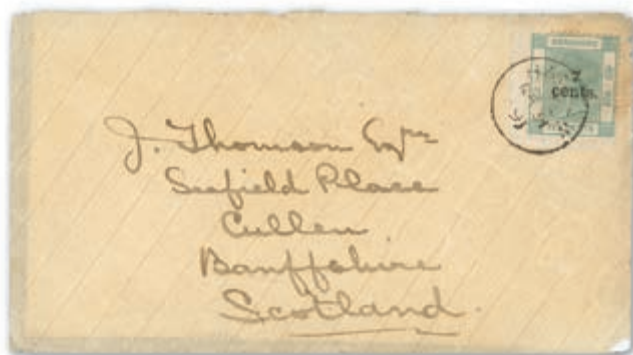 HONG KONG
7
cents.
J. Thomson Esqre
Seafield Place
Cullen
Banffshire
Scotland.